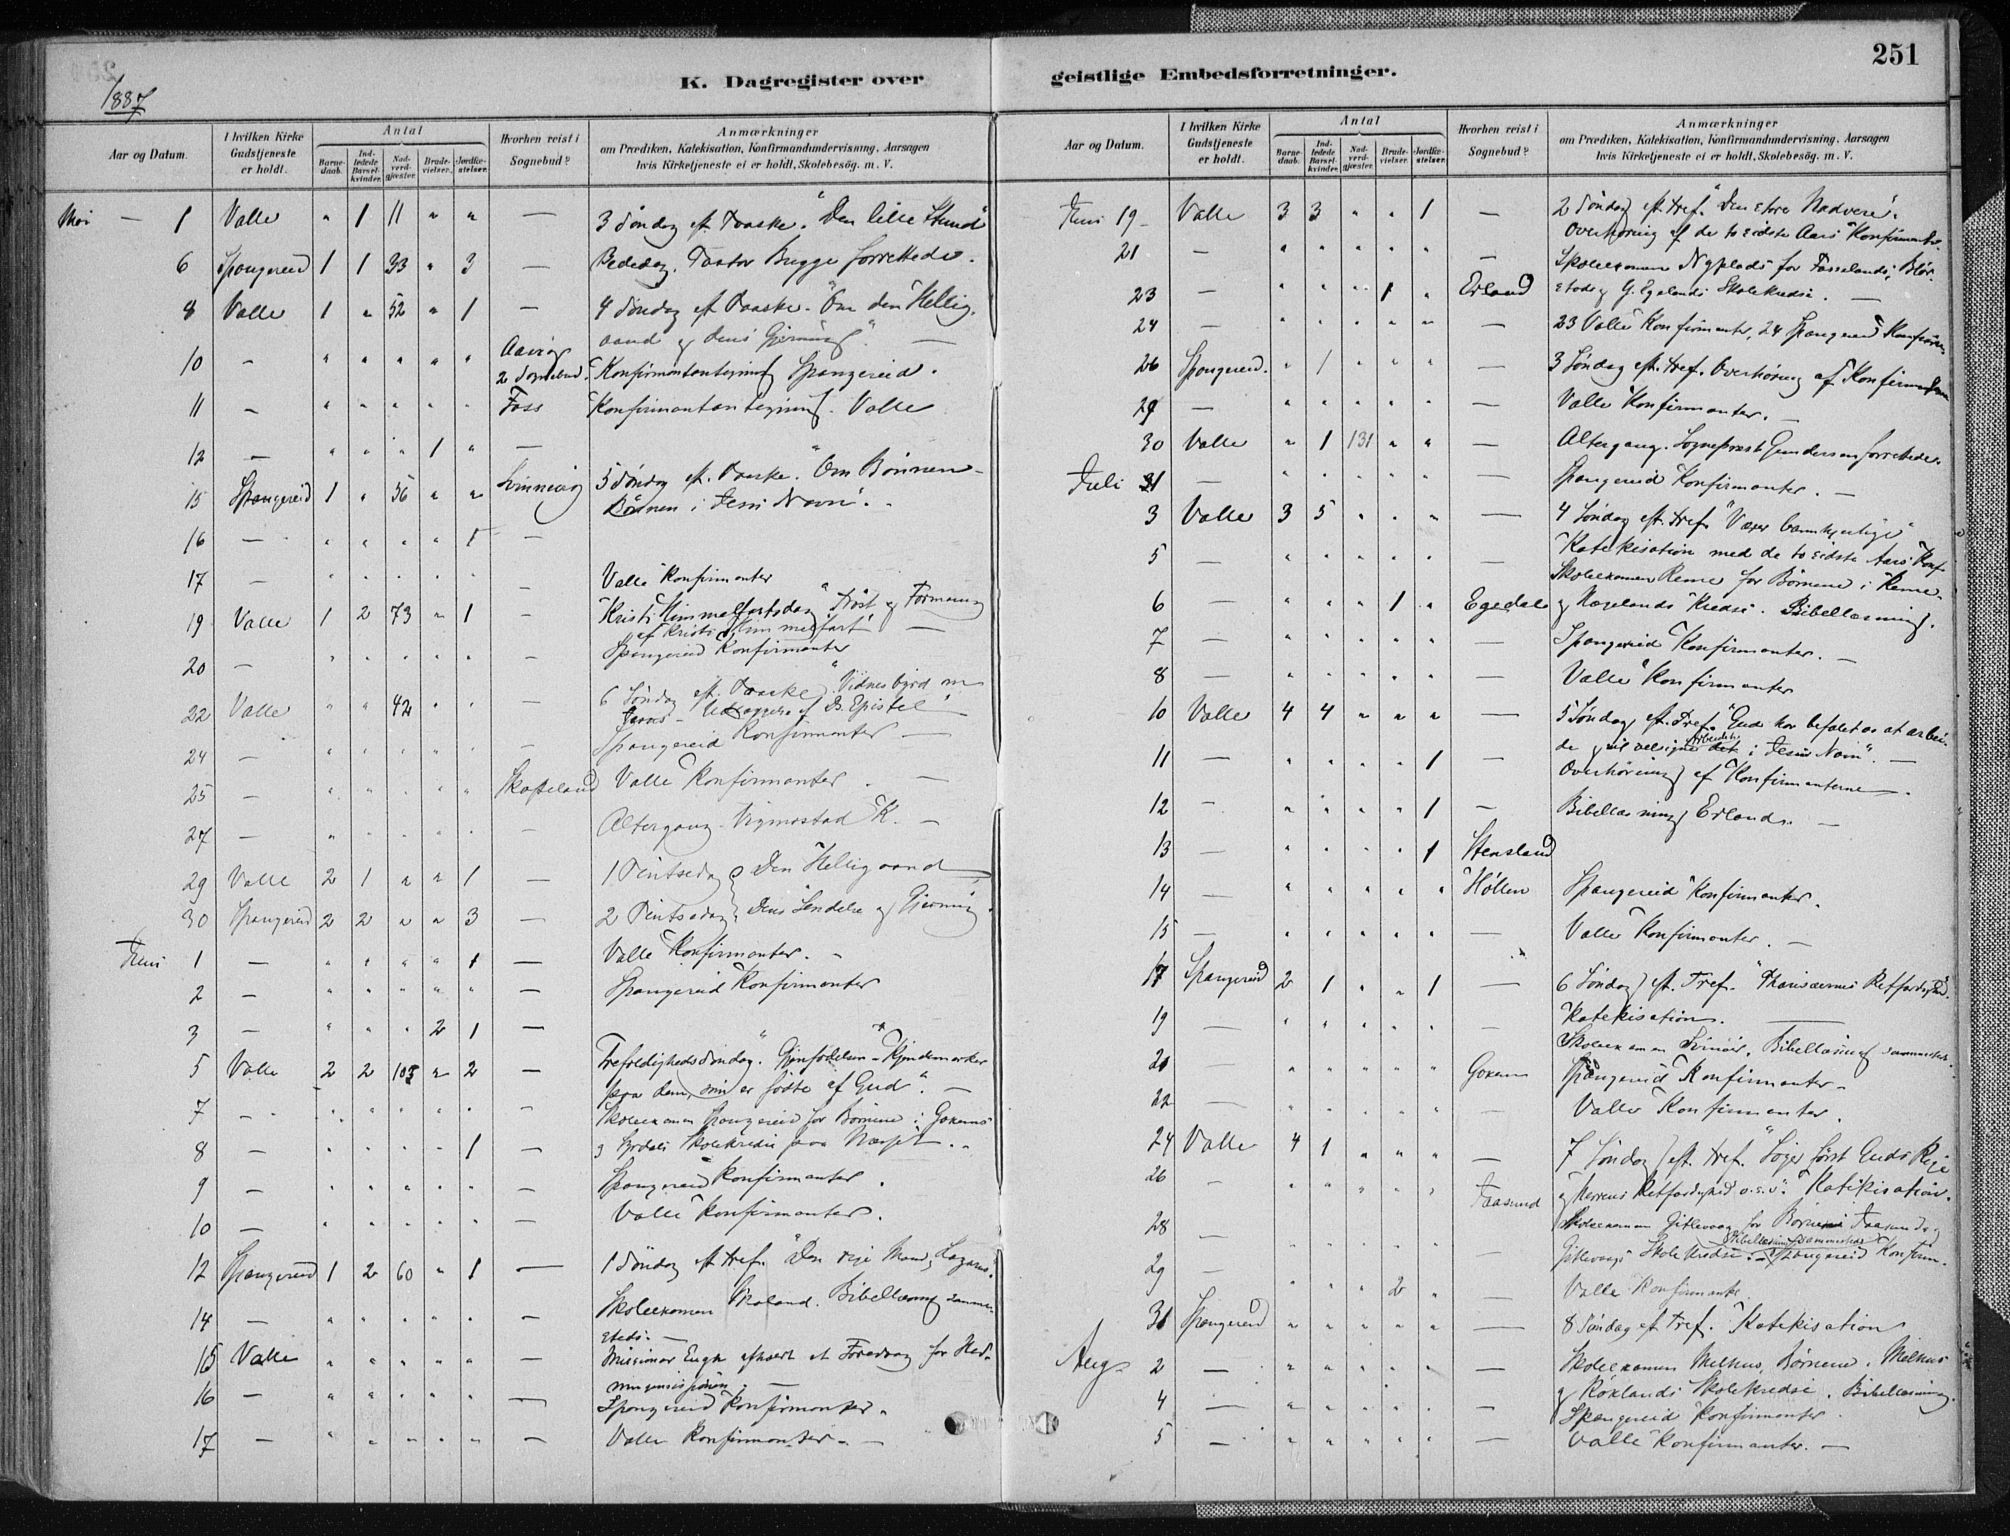 251
1887
K. Dagregister over geistlige Embedsforretninger.
Aar og Datum. I hvilken Kirke Gudstjeneste er holdt. Antal Barnedaab. Indledede Barselkvinder. Nadverdgjæster. Brudevielser. Jordfæstelser. Hvorhen reist i Sognebud? Anmærkninger om Prædiken, Katekisation, Konfirmandundervisning, Aarsagen hvis Kirketjeneste ei er holdt, Skolebesøg. m. V.
Mai — 1 Valle " 1 11 " " — 3 Søndag eft. Paaske. "Den lille Stund"
6 Spangereid 1 1 33 " 3 — Bededag. Pastor Bugge forrettede.
8 Valle 1 " 52 " 1 — 4 Søndag eft Paaske. "Om den Hellig-
aand og dens Gjerning". —
10 - " " " " " 2 Sognebud. Konfirmantantegning Spangereid.
11 - " " " " " Foss Konfirmantantegning. Valle
12 — " " " 1 " —
15 Spangereid 1 " 56 " " Svinnevig 5 Søndag eft. Paaske. "Om Bønnen -
Bønnen i Jesu Navn".
16 — " " " " 1 —
17 - " " " " " - Valle Konfirmanter
19 Valle 1 2 73 " 1 - Kristi Himmelfartsdag "Trøst og Formaning
af Kristi Himmelfart" —
20 — " " " " " - Spangereid Konfirmanter
22 Valle " " 42 " " - 6 Søndag eft. Paaske. "Vidnesbyrd om
Jesus - Udlæggelse af Ds. Epistel" —
24 — " " " " " - Spangereid Konfirmanter —
25 — " " " " " Skofteland Valle Konfirmanter. —
27 — " " " " " - Altergang Vigmostad K. —
29 Valle 2 1 " " 1 — 1 Pintsedag } Den Helligaand
30 Spangereid 2 2 " " 3 — 2 Pintsedag } Dens Sendelse og Gjerning.
Juni 1 — " " " " 1 — Valle Konfirmanter. -
2 — " " " " " — Spangereid Konfirmanter
3 — " " " 2 1 —
5 Valle 2 2 105 " 2 — Trefoldighedssøndag. "Gjenfødelsen - Kjendemærker
paa dem, som er fødte af Gud". —
7 — " " " " " - Skoleexamen Spangereid for Børnene i Gokems
8 — " " " " 1 — og Skolekredse paa Næsset. -
9 — " " " " " — Spangereid Konfirmanter.
10 — " " " " " — Valle Konfirmanter.
12 Spangereid 1 2 60 " 1 — 1 Søndag eft Tref. "Den rige Mand, Lazarus".
14 — " " " " " — Skoleexamen Skoland. Bibellæsning samme-
steds. —
15 Valle " " " " " — Missionær Engh afholdt et Foredrag for Hed-
ningemissionen. —
16 — " " " " " — Spangereid Konfirmanter.
17 — " " " " " — Valle Konfirmanter. —
Aar og Datum. I hvilken Kirke Gudstjeneste er holdt. Antal Barnedaab. Indledede Barselkvinder. Nadverdgjæster. Brudevielser. Jordfæstelser. Hvorhen reist i Sognebud? Anmærkninger om Prædiken, Katekisation, Konfirmandundervisning, Aarsagen hvis Kirketjeneste ei er holdt, Skolebesøg. m. V.
Juni 19 Valle 3 3 " " 1 — 2 Søndag eft. Tref. "Den store Nadvere".
Overhøring af de to sidste Aars Konfirmanter.
21 — " " " " " — Skoleexamen Nyplads for Fasselands, Blør-
23 — " " " 1 " Erland stad og G. Egelands Skolekredse. —
24 — " " " " " — 23 Valle Konfirmanter, 24 Spangereid Konfirmanter
26 Spangereid. " 1 " " " — 3 Søndag eft. Tref. Overhøring af Konfirmanterne
29 — " " " " " — Valle Konfirmanter. —
30 Valle " 1 131 " " — Altergang. Sogneprest Gundersen forrettede.
Juli 1 — " " " " " — Spangereid Konfirmanter. —
3 Valle 3 5 " " " — 4 Søndag eft. Tref. "Værer barmhjertige"
Katekisation med de to sidste Aars Konf.
5 — " " " " " — Skoleexamen Renne for Børnene i Renne
6 — " " " 1 " Egedal og Hægelands Kredse. Bibellæsning.
7 — " " " " " — Spangereid Konfirmanter. —
8 — " " " " " — Valle Konfirmanter
10 Valle 4 4 " " " — 5 Søndag eft. Tref. "Gud har befalet os at arbei-
de og vil velsigne Arbeidet i Jesus Navn". —
11 — " " " " 1 — Overhøring af Konfirmanterne.
12 — " " " " 1 — Bibellæsning Erland. —
13 — " " " " 1 Stensland
14 — " " " " " Hölten Spangereid Konfirmanter.
15 — " " " " " — Valle Konfirmanter. —
17 Spangereid 2 1 " " 1 — 6 Søndag eft. Tref. "Pharisæernes Retfærdighed".
Katekisation. —
19 — " " " " " — Skoleexamen Svinør. Bibellæsning sammesteds.
21 — " " " " " Gokem Spangereid Konfirmanter -
22 — " " " " " — Valle Konfirmanter.
24 Valle 4 1 " " " — 7 Søndag eft. Tref. "Søger først Guds Rige
26 — " " " " " Faasund og Herrens Retfærdighed o.s.v". Katekisation.
28 — " " " " " Skoleexamen Gitlevaag for Børnene i Faasund og
Gitlevaags Skolekredse. Bibellæsning sammesteds. Spangereid Konfirm.
29 — " " " 2 " — Valle Konfirmanter.
31 Spangereid " " " " " — 8 Søndag eft Tref. Katekisation
Aug. 2 — " " " " " — Skoleexamen Melhus, Børnene i Melhus
4 — " " " " " — og Røxlands Skolekredse. Bibellæsning.
Spangereid Konfirmanter.
5 — " " " " " — Valle Konfirmanter. —